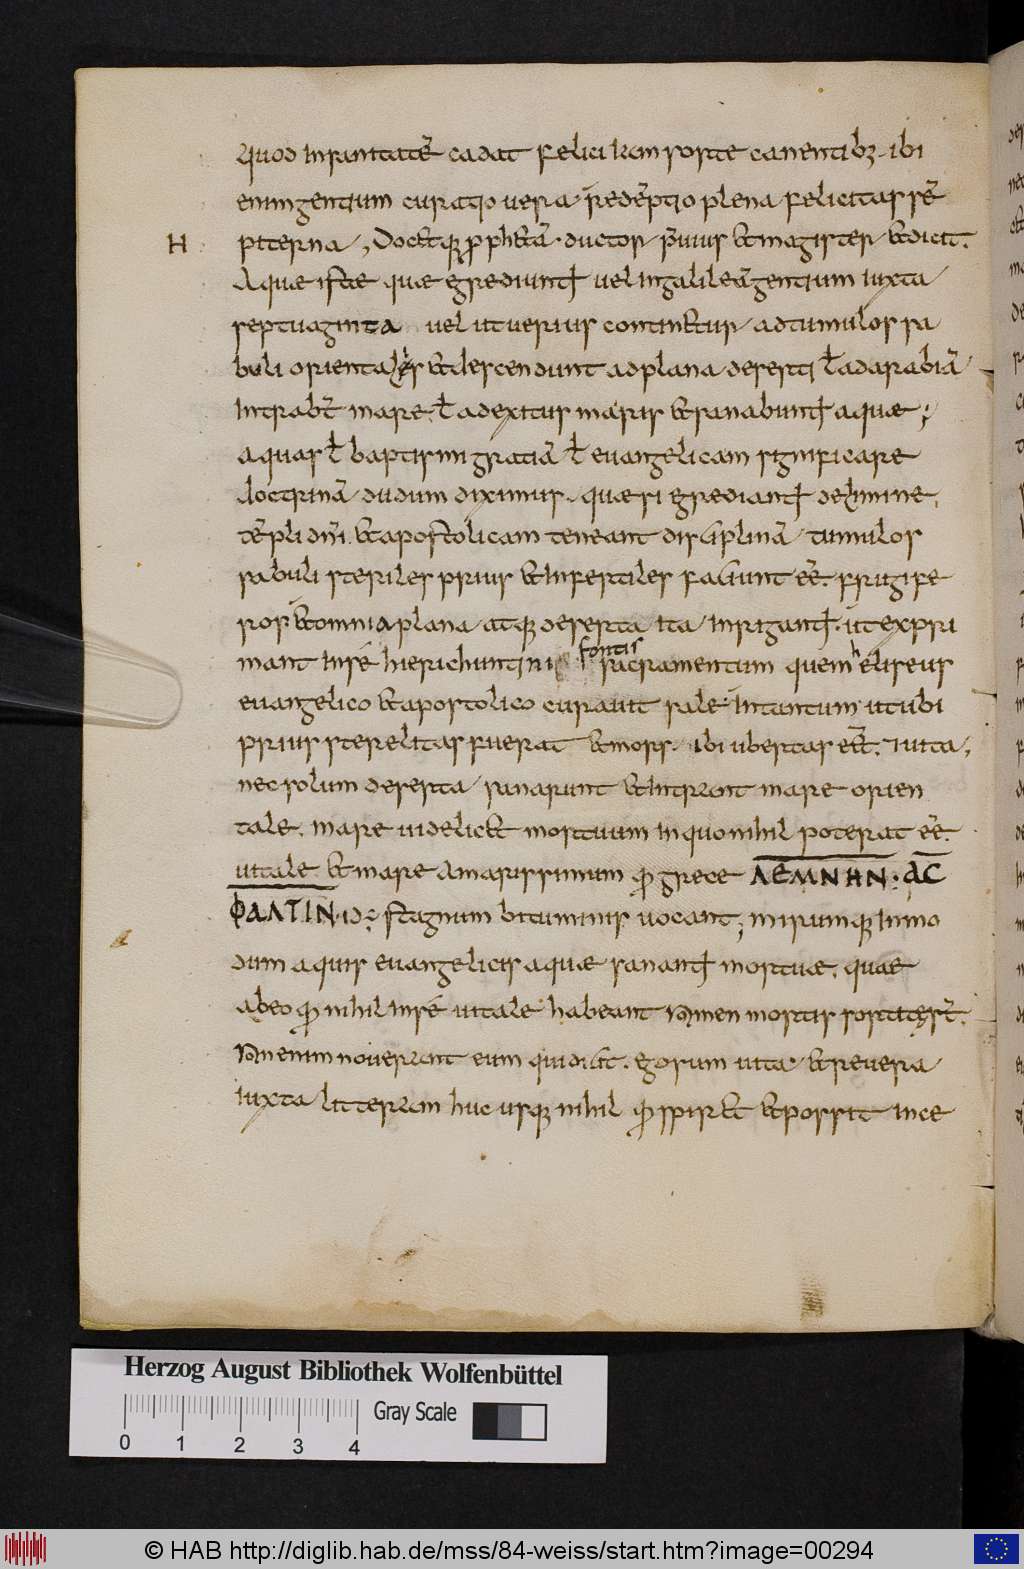 quod insanitatē cadat felici iam sorte canentibꝫ. ibi
enim gentium curatio uera. redēptio plena felicitas sē
H
piterna, Docetqꝫ pphetā. ductor. p̄uius et magister. et dicit.
Aquae istae quae egrediunt̄ uel ingalileā gentium iuxta
septuaginta uel ut uerius continetur. ad tumulos sa
buli orientales et descendunt ad plana deserti ł ad arabiā.
intrabt̄ mare. ł ad exitus maris et sanabunt̄ aquae;
aquas ł baptismi gratiā ł euangelicam significare
doctrinā. dudum diximus. quae si egrediant̄ de limine
tēpli dn̄i. et apostolicam teneant disciplinā. tumulos
sabuli steriles prius et infertiles faciunt eē. frugife
ros. et omnia plana atqꝫ deserta ita inrigant̄. ut expri
mant insé hierichuntini fontis sacramentum quem heliseus
euangelico et apostolico curauit sale. intantum ut ubi
prius sterelitas fuerat et mors. ibi ubertas eēt. et uita;
nec solum deserta. sanarunt et intrant mare orien
tale. mare uidelicet mortuum in quo nihil poterat eē.
uitale. et mare amarissimum qđ grece ΛΕΜΝΗΝ. ΑC
ΦΑΛΤΙΝ. id÷ stagnum bituminis uocant; mirumqꝫ inmo
dum aquis euangelicis aquae sanant̄ mortuae. quae
ab eo qđ nihil insé uitale habeant nomen mortis sortitę st̄.
Non enim nouerant eum qui dicit. ego sum uita. et reuera
iuxta litteram huc usqꝫ nihil qđ spiret et possit ince
Herzog August Bibliothek Wolfenbüttel
Gray Scale
0 1 2 3 4
© HAB http://diglib.hab.de/mss/84-weiss/start.htm?image=00294